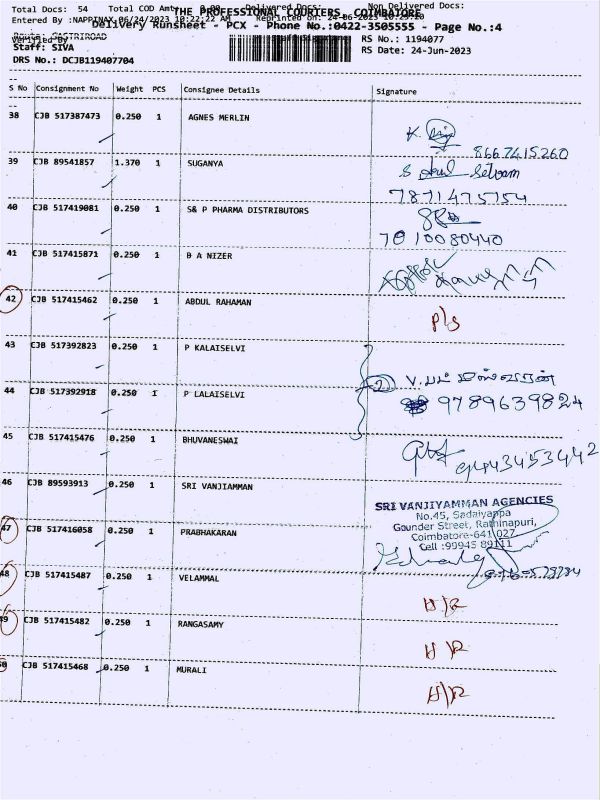 Total Docs: 54 Total COD Amt: 0.00 Delivered Docs: Non Delivered Docs:
THE PROFESSIONAL COURIERS, COIMBATORE
Entered By :NAPPINAX 06/24/2023 10:22:22 AM Reprinted on: 24-06-2023
Delivery Runsheet - PCX - Phone No.:0422-3505555 - Page No.:4
Route: GASTRIROAD
Verified By
RS No.: 1194077
Staff: SIVA
RS Date: 24-Jun-2023
DRS No.: DCJB119407704
S No Consignment No Weight PCS Consignee Details Signature
38 CJB 517387473 0.250 1 AGNES MERLIN
K.
8667415260
39 CJB 89541857 1.370 1 SUGANYA
S Selvam
7871475754
40 CJB 517419081 0.250 1 S& P PHARMA DISTRIBUTORS
7010080440
41 CJB 517415871 0.250 1 B A NIZER
42 CJB 517415462 0.250 1 ABDUL RAHAMAN
P/S
43 CJB 517392823 0.250 1 P KALAISELVI
2
9789639824
44 CJB 517392918 0.250 1 P LALAISELVI
45 CJB 517415476 0.250 1 BHUVANESWAI
9443453442
46 CJB 89593913 0.250 1 SRI VANJIAMMAN
SRI VANJIYAMMAN AGENCIES
No.45, Sadaiyappa
Gounder Street, Rathinapuri,
Coimbatore-641 027
Cell :99945 89111
47 CJB 517416058 0.250 1 PRABHAKARAN
48 CJB 517415487 0.250 1 VELAMMAL
49 CJB 517415482 0.250 1 RANGASAMY
50 CJB 517415468 0.250 1 MURALI